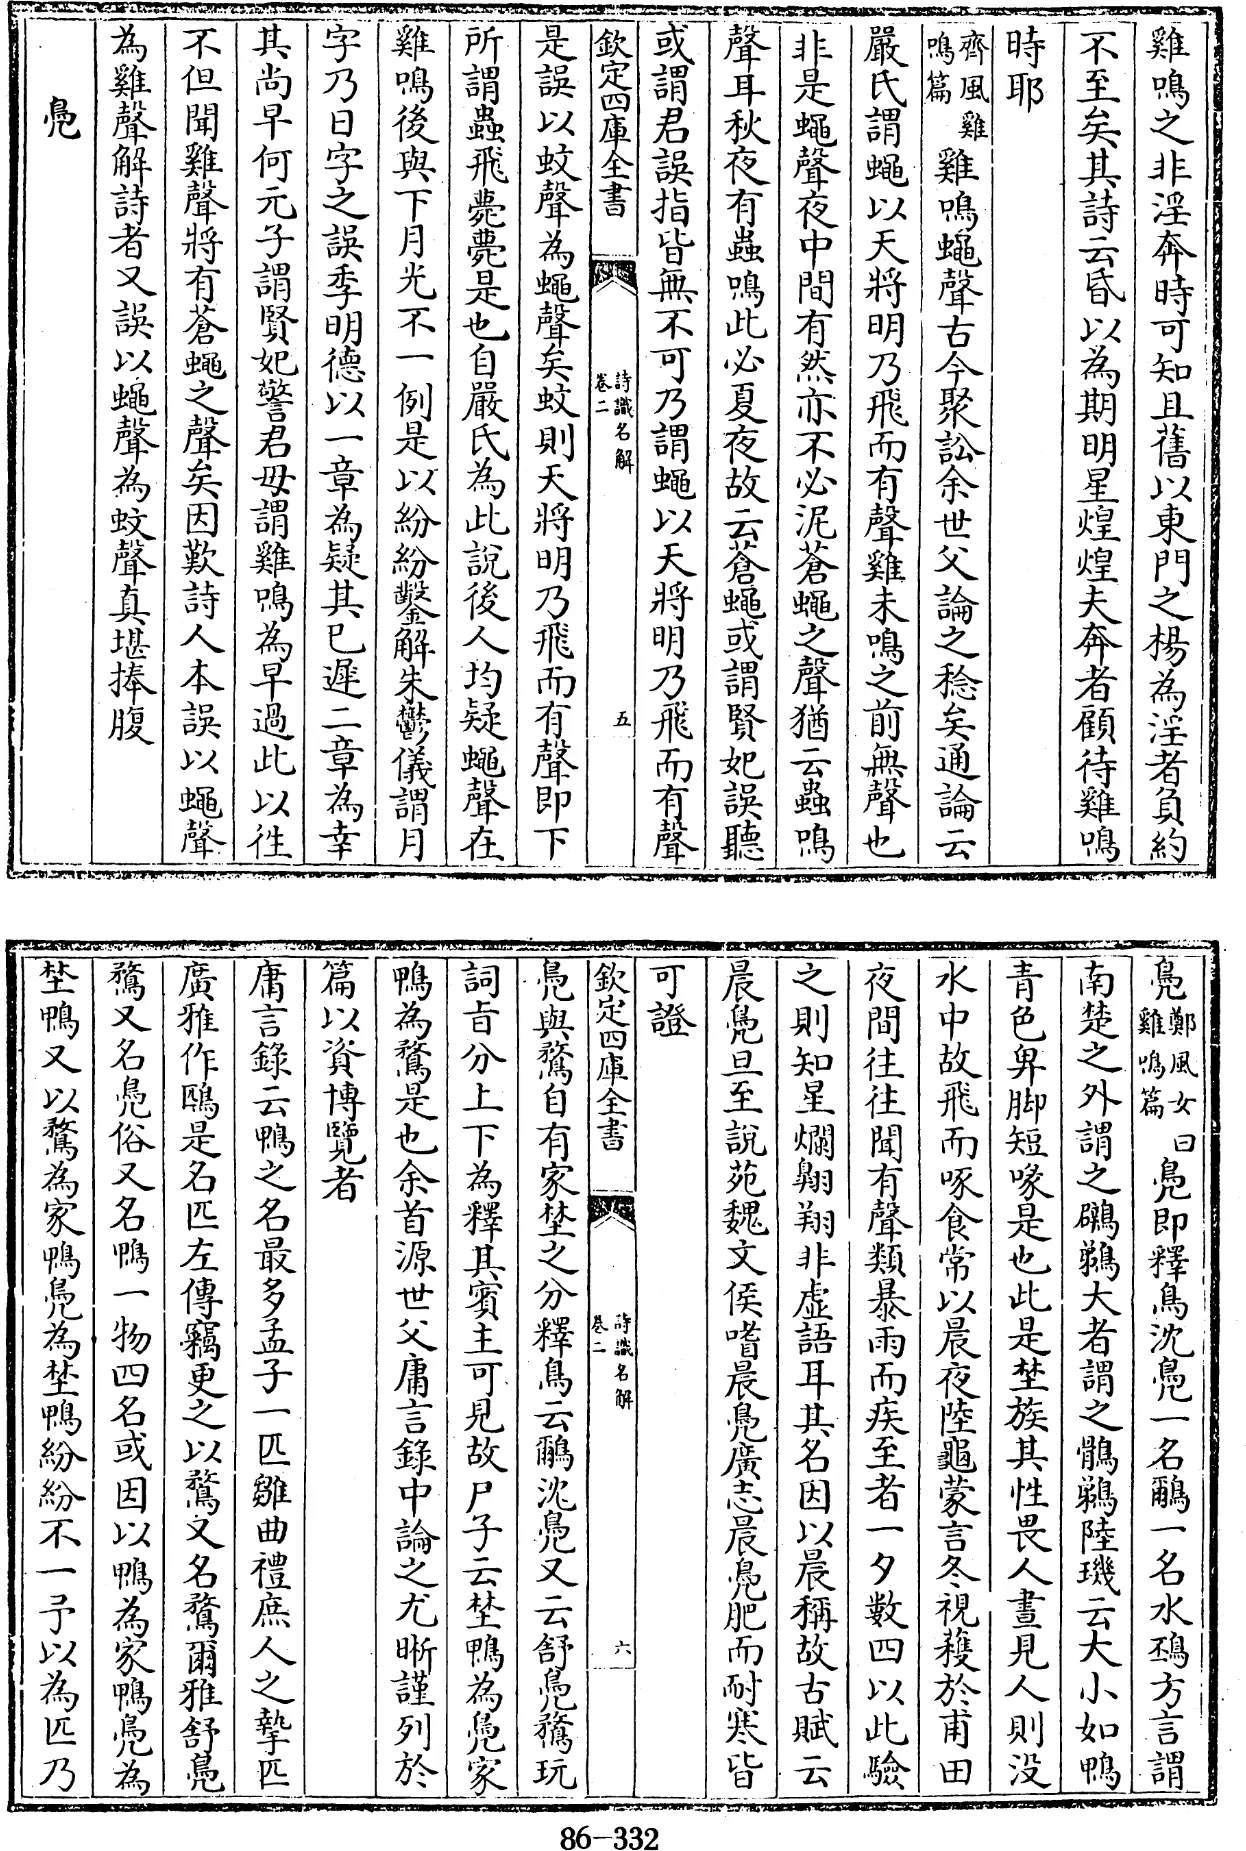 雞鳴之非淫奔時可知且舊以東門之楊為淫者負約
不至矣其詩云昏以為期明星煌煌夫奔者顧待雞鳴
時耶
齊風雞
鳴篇
雞鳴蠅聲古今聚訟余世父論之稔矣通論云
嚴氏謂蠅以天將明乃飛而有聲雞未鳴之前無聲也
非是蠅聲夜中間有然亦不必泥蒼蠅之聲猶云蟲鳴
聲耳秋夜有蟲鳴此必夏夜故云蒼蠅或謂賢妃誤聽
或謂君誤指皆無不可乃謂蠅以天將明乃飛而有聲
欽定四庫全書
詩識名解
卷二
五
是誤以蚊聲為蠅聲矣蚊則天將明乃飛而有聲即下
所謂蟲飛薨薨是也自嚴氏為此說後人均疑蠅聲在
雞鳴後與下月光不一例是以紛紛鑿解朱鬱儀謂月
字乃日字之誤季明德以一章為疑其已遲二章為幸
其尚早何元子謂賢妃警君毋謂雞鳴為早過此以往
不但聞雞聲將有蒼蠅之聲矣因歎詩人本誤以蠅聲
為雞聲解詩者又誤以蠅聲為蚊聲真堪捧腹
鳧
鳧
鄭風女曰
雞鳴篇
鳧即釋鳥沈鳧一名鸍一名水鴄方言謂
南楚之外謂之鸊鷉大者謂之鶻鷉陸璣云大小如鴨
青色卑脚短喙是也此是埜族其性畏人晝見人則没
水中故飛而啄食常以晨夜陸龜蒙言冬視穫於甫田
夜間往往聞有聲類暴雨而疾至者一夕數四以此驗
之則知星爛翺翔非虛語耳其名因以晨稱故古賦云
晨鳧旦至說苑魏文侯嗜晨鳧廣志晨鳧肥而耐寒皆
可證
欽定四庫全書
詩識名解
卷二
六
鳧與鶩自有家埜之分釋鳥云鸍沈鳧又云舒鳧鶩玩
詞旨分上下為釋其賓主可見故尸子云埜鴨為鳧家
鴨為鶩是也余首源世父庸言錄中論之尤晰謹列於
篇以資博覽者
庸言錄云鴨之名最多孟子一匹雛曲禮庶人之摯匹
廣雅作鴄是名匹左傳竊更之以鶩又名鶩爾雅舒鳧
鶩又名鳧俗又名鴨一物四名或因以鴨為家鴨鳧為
埜鴨又以鶩為家鴨鳧為埜鴨紛紛不一予以為匹乃
86-332